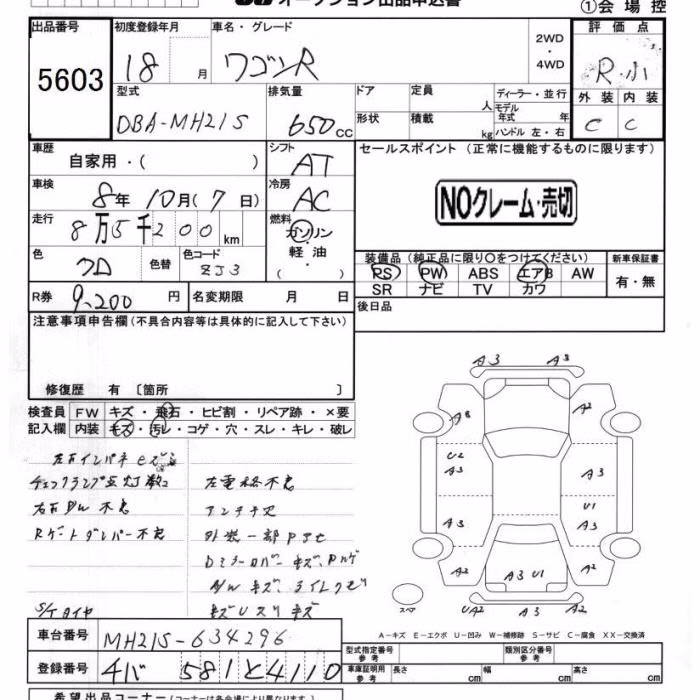 オークション出品申込書
①会場控
出品番号 初度登録年月 車名・グレード 2WD ・4WD 評価点
5603 18 月 ワゴンR R・小
外装 内装
型式 排気量 ドア 定員 人 ディーラー・並行
DBA-MH21S 650 cc 形状 積載 kg モデル年式 年 ハンドル 左・右 C C
車歴 自家用・( ) シフト AT セールスポイント (正常に機能するものに限ります)
車検 8年 10月(7日) 冷房 AC
NOクレーム・売切
走行 8万5千200km 燃料 ガソリン 軽・油 ・( )
色 クロ 色替 色コード ZJ3
装備品 (純正品に限り○をつけてください) 新車保証書
PS PW ABS エアB AW 有・無
SR ナビ TV カワ
R券 9,200円 名変期限 月 日 後日品
注意事項申告欄(不具合内容等は具体的に記入して下さい)
修復歴 有 〔箇所 〕
検査員 FW キズ・飛石・ヒビ割・リペア跡・×要
記入欄 内装 キズ・汚レ・コゲ・穴・スレ・キレ・破レ
A3 A3
A8 A2
U2
A3 A3
U1
A3 A2
A2 A3 U1 A2
スペア UA2 A3 A2
チェックランプ点灯
左電格不良
不良 アンテナ欠
Rゲートダンパー不良 外装一部
S/Tタイヤ
A-キズ E-エクボ U-凹み W-補修跡 S-サビ C-腐食 XX-交換済
車台番号 MH21S-634296
型式指定番号 参考 類別区分番号 参考
登録番号 チバ 581と4110
車庫証明用 参考 長さ cm 幅 cm 高さ cm
希望出品コーナー(コーナーは各会場により異なります)